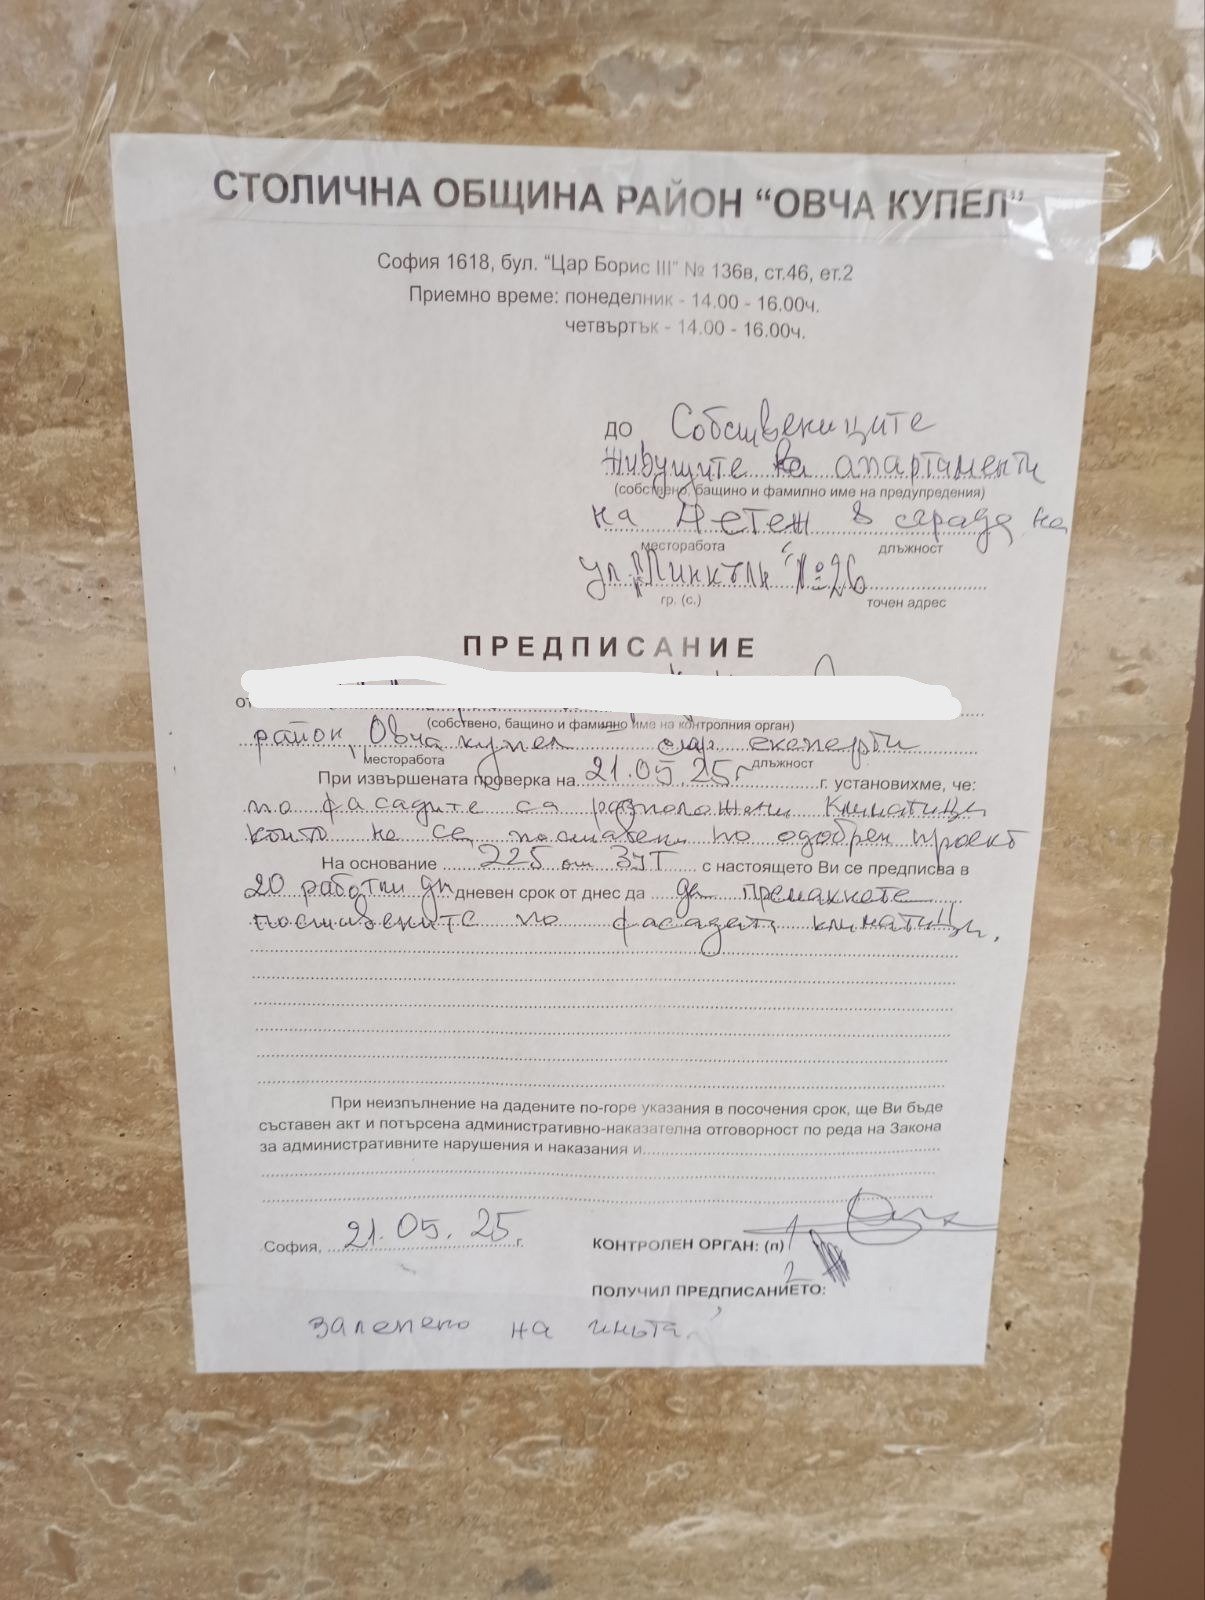 СТОЛИЧНА ОБЩИНА РАЙОН “ОВЧА КУПЕЛ”
София 1618, бул. “Цар Борис III” № 136в, ст.46, ет.2
Приемно време: понеделник - 14.00 - 16.00ч.
четвъртък - 14.00 - 16.00ч.
до Собствениците
живущите на апартаменти
(собствено, бащино и фамилно име на предупредения)
на етеж в сграда на
месторабота длъжност
ул. "Пинкъли" №26
гр. (с.) точен адрес
ПРЕДПИСАНИЕ
от
(собствено, бащино и фамилно име на контролния орган)
район Овча купел експерти
месторабота длъжност
При извършената проверка на 21.05.25г г. установихме, че:
по фасадите са разположени климатици
които не са поставени по одобрен проект
На основание 225 от ЗУТ с настоящето Ви се предписва в
20 работни дн дневен срок от днес да да премахнете
поставените по фасадата климатици.
При неизпълнение на дадените по-горе указания в посочения срок, ще Ви бъде
съставен акт и потърсена административно-наказателна отговорност по реда на Закона
за административните нарушения и наказания и
София, 21.05.25 г.
КОНТРОЛЕН ОРГАН: (п) 1
2
ПОЛУЧИЛ ПРЕДПИСАНИЕТО:
залепено на